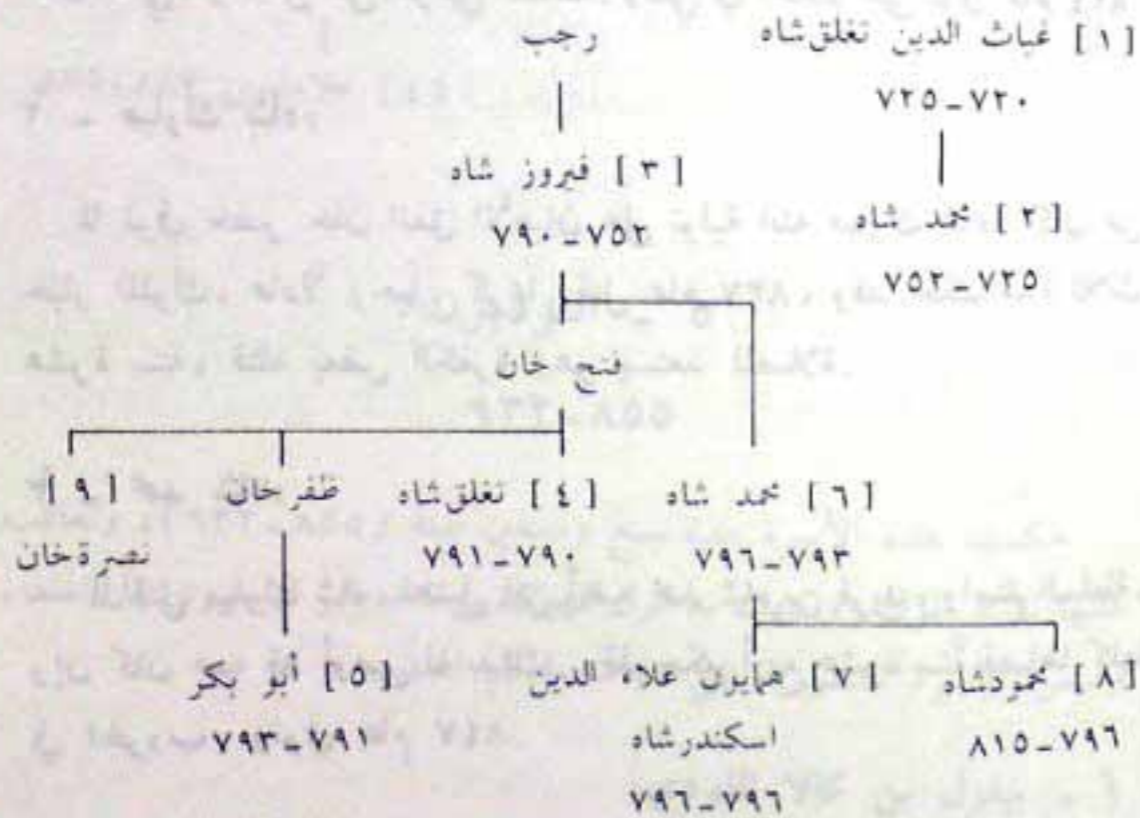 [ ١ ] غياث الدين تغلق‌شاه
٧٢٠-٧٢٥
رجب
[ ٢ ] محمد شاه
٧٢٥-٧٥٢
[ ٣ ] فيروز شاه
٧٥٢-٧٩٠
فتح خان
[ ٦ ] محمد شاه
٧٩٣-٧٩٦
[ ٤ ] تغلق‌شاه
٧٩٠-٧٩١
ظفر خان
[ ٩ ]
نصرة خان
[ ٨ ] محمودشاه
٧٩٦-٨١٥
[ ٧ ] همايون علاء الدين
اسكندر شاه
٧٩٦-٧٩٦
[ ٥ ] أبو بكر
٧٩١-٧٩٣